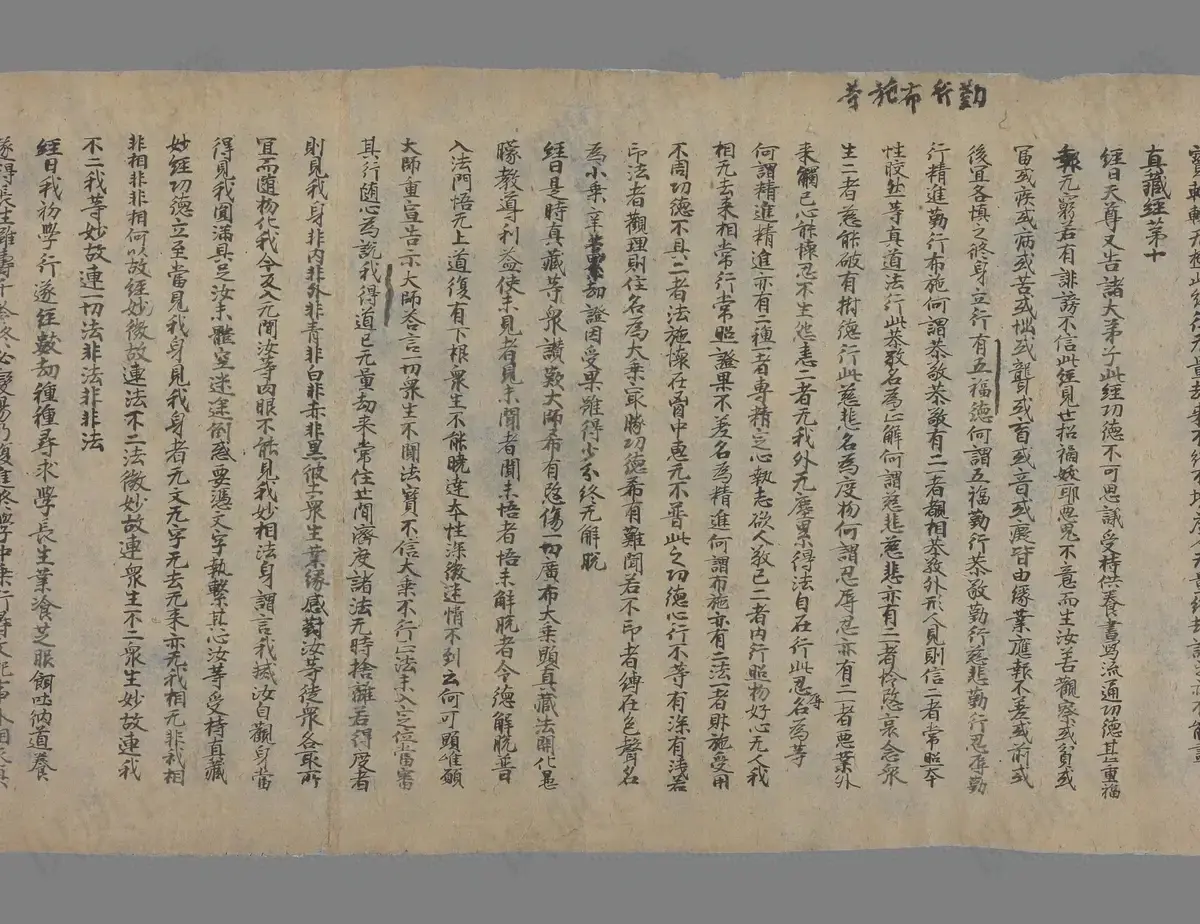 勤行布施等
真藏經第十
經曰天尊又告諸大弟子此經功德不可思議受持供養書寫流通功德甚重福
報无窮若有誹謗不信此經見世招禍娥耶惡鬼不意而生汝善觀察或貧或
冨或疾或病或苦或拙或聾或盲或音或瘂皆由緣業應報不差或前或
後宜各慎之終身立行有五福德何謂五福勤行恭敬勤行慈悲勤行忍辱勤
行精進勤行布施何謂恭敬恭敬有二一者覩相恭敬外形人見則信二者常照本
性皎然一等真道法行此恭敬名為正解何謂慈悲慈悲亦有二者怜愍哀念衆
生二者慈能破有樹德行此慈悲名為度物何謂忍辱忍亦有二一者惡業外
来觸己心能懷忍不生恚二者无我外无塵累得法自在行此忍辱名為等
何謂精進精進亦有二種一者專精定心執志欲人敬己二者內行照物好心无人我
相无去来相常行常照證果不差名為精進何謂布施亦有二法一者財施受用
不同功德不具二者法施懷在胷中惠无不普此之功德心行不等有深有淺若
印法者觀理則住名為大乘取勝功德希有難聞若不印者縛在色聲名
為小乘辛苦累劫證因受果雖得少分終无解脫
經曰是時真藏等衆讚歎大師希有慈傷一切廣布大乘顯真藏法開化愚
矇教導利益使未見者見未聞者聞未悟者悟未解脫者令德解脫普
入法門悟无上道復有下根衆生不能曉達本性深微迷惛不到云何可顯唯願
大師重宣告示大師荅言一切衆生不聞法寶不信大乘不行正法未入定位當審
其行随心為說我得道已无量劫来常住世間濟度諸法无時捨離若得度者
則見我身非內非外非青非白非赤非黑彼土衆生業緣感對汝等徒衆各取所
宜而随物化我今及入无間汝等肉眼不能見我妙相法身謂言我滅汝自觀身當
得見我圓滿具足汝未離空迷途倒惑要憑文字執繫其心汝等受持真藏
妙經功德立至當見我身見我身者无文无字无去无来亦无我相无非我相
非相非非相何以故經妙微故連法不二法微妙故連衆生不二衆生妙故連我
不二我等妙故連一切法非法非非法
經曰我初學行遂經數劫種種尋求學長生業飡芝服餌吐納道養
遂得長生雖壽千